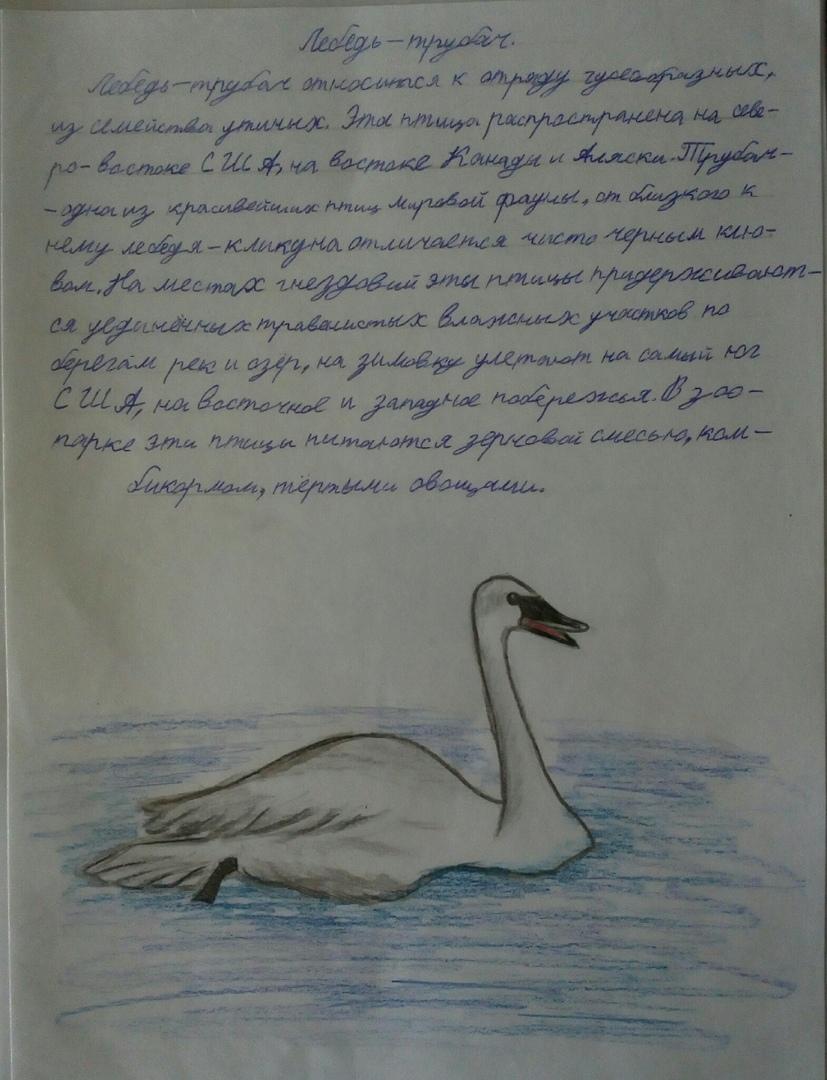 Лебедь-трубач.
Лебедь-трубач относится к отряду гусеобразных,
из семейства утиных. Эта птица распространена на севе-
ро-востоке США, на востоке Канады и Аляски. Трубач-
-одна из красивейших птиц мировой фауны, от близкого к
нему лебедя-кликуна отличается чисто черным клю-
вом. На местах гнездовий эти птицы придерживают-
ся уединённых травянистых влажных участков по
берегам рек и озёр, на зимовку улетают на самый юг
США, на восточное и западное побережья. В зоо-
парке эти птицы питаются зерновой смесью, ком-
бикормом, тёртыми овощами.